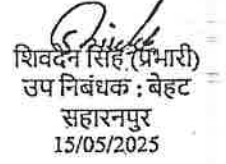 शिवदैन सिंह (प्रभारी)
उप निबंधक : बेहट
सहारनपुर
15/05/2025